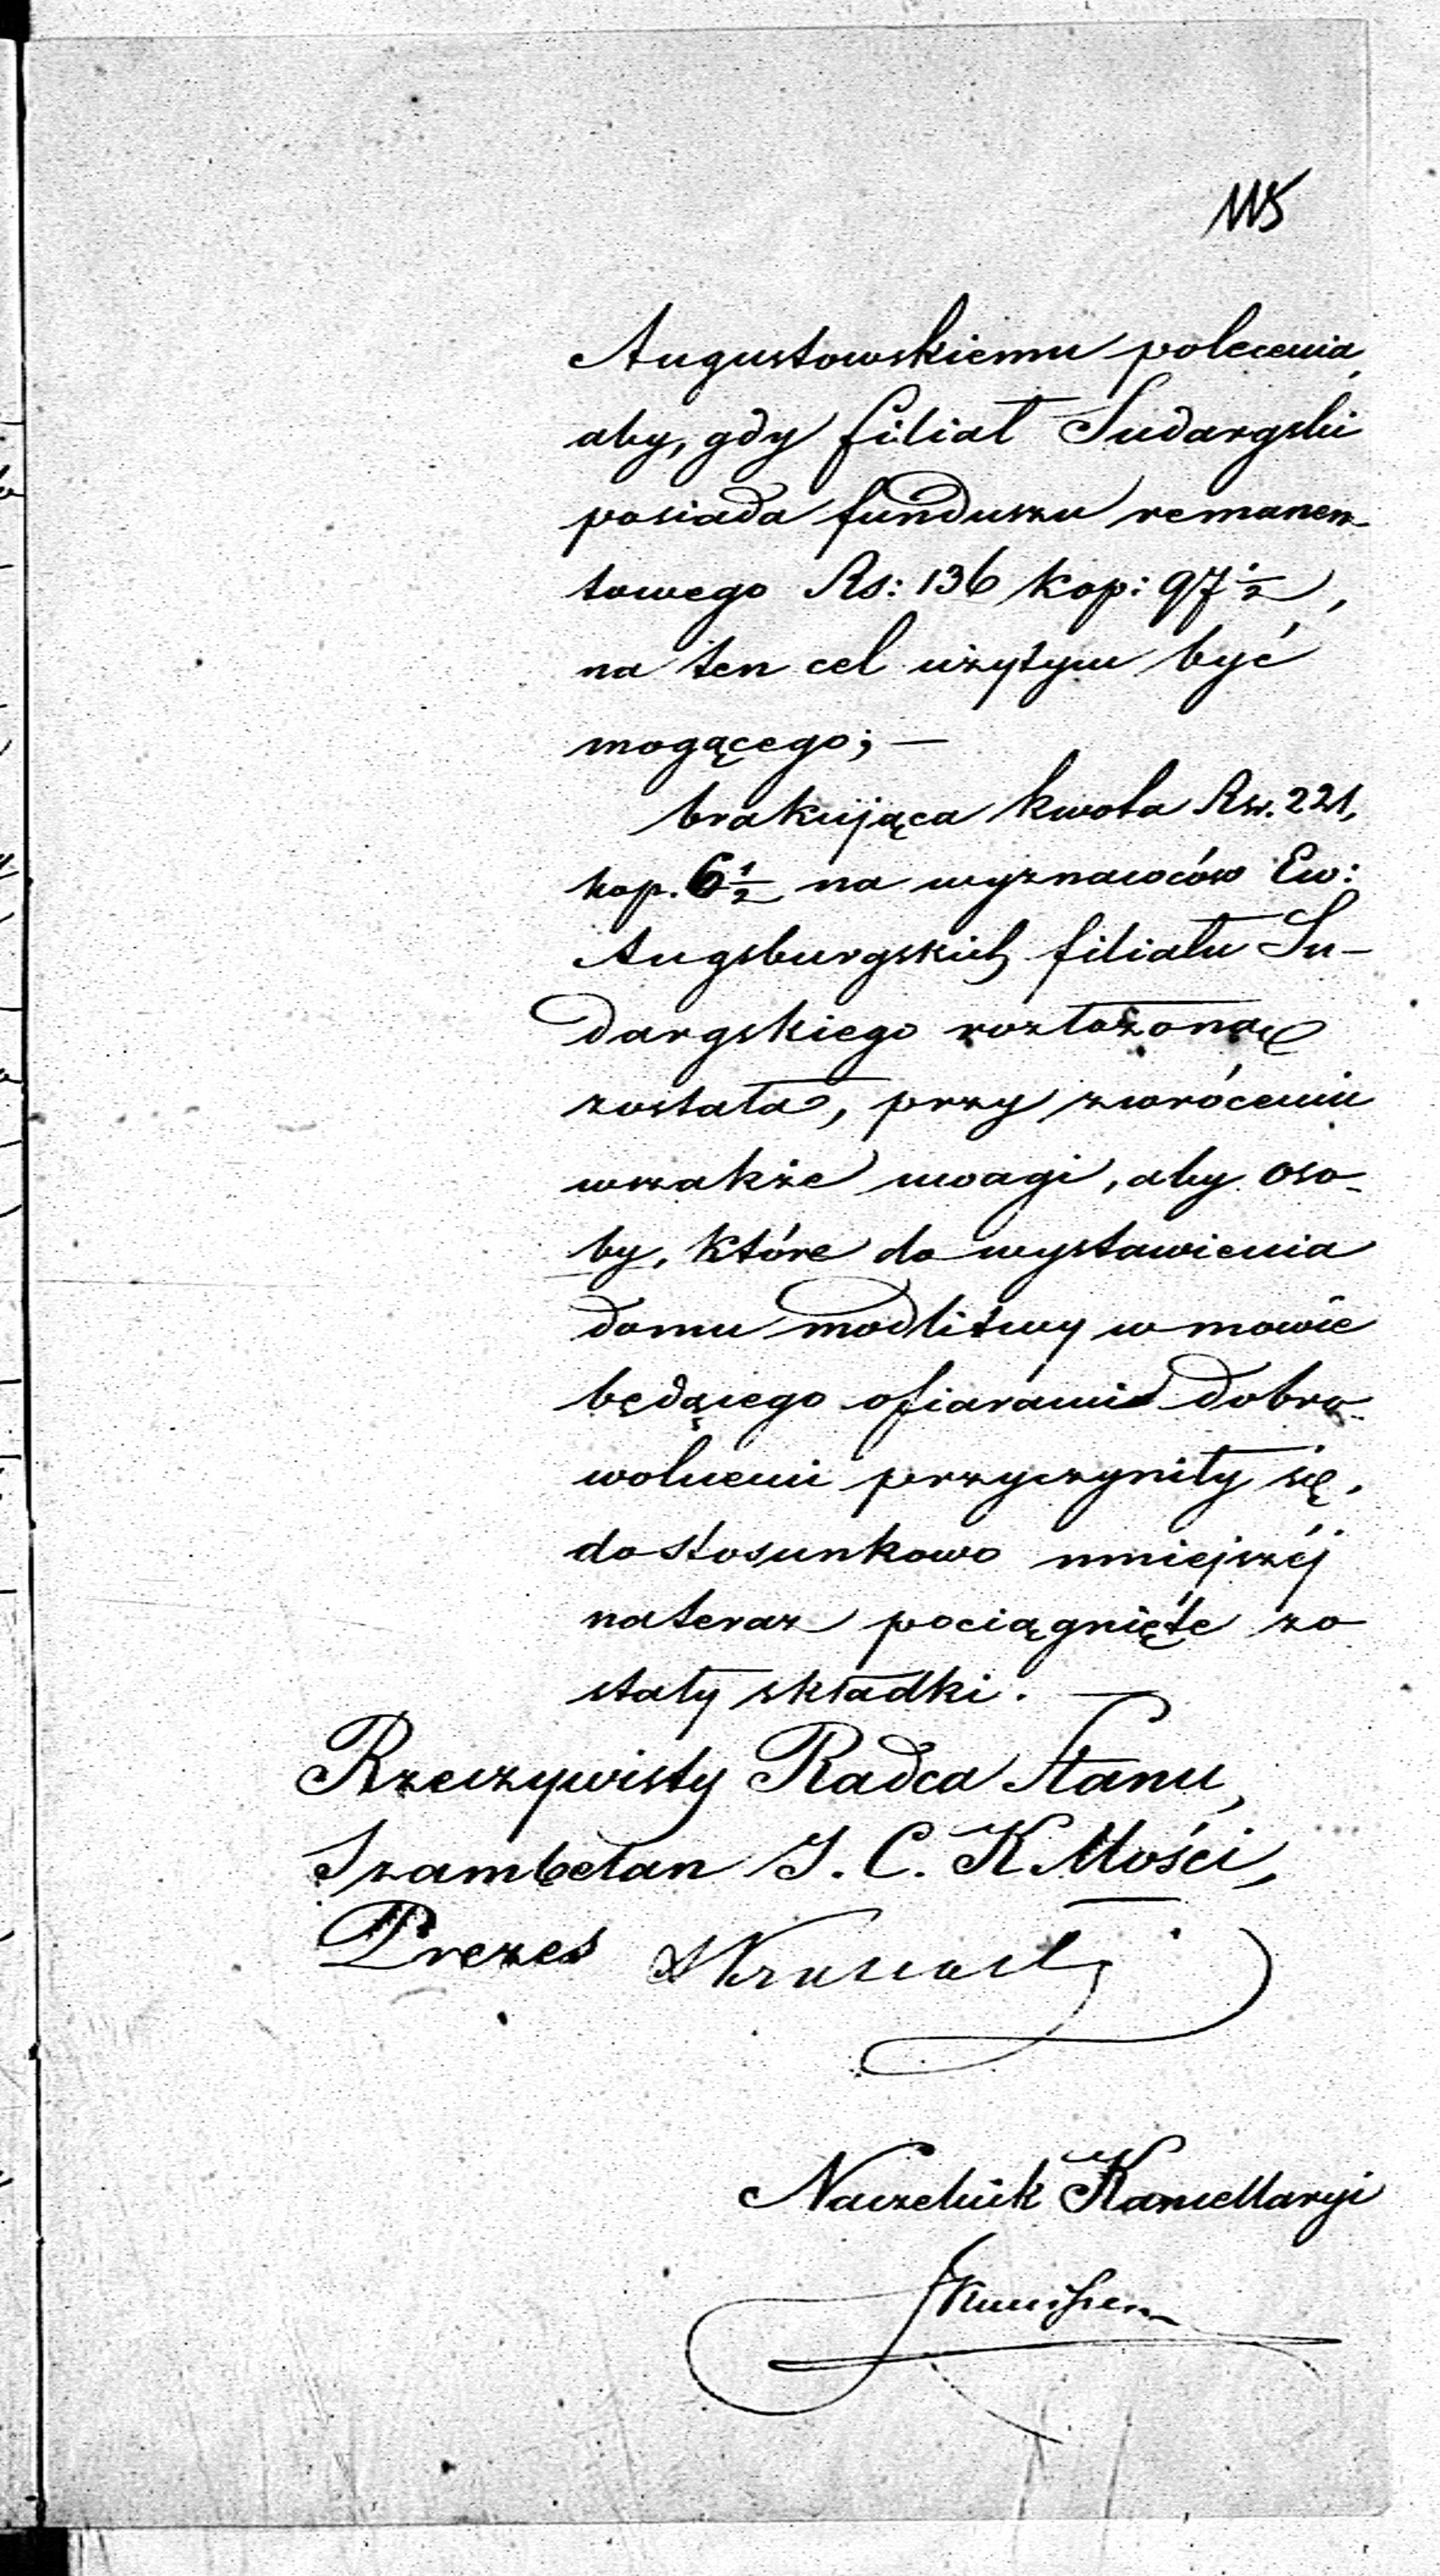 115
Augustowskiemu polecenia,
aby, gdy filiał Sudargski
posiada funduszu remanen-
towego Rs: 136 kop: 97 1/2,
na ten cel użytym być
mogącego; —
brakująca kwota Rsr. 221,
kop. 6 1/2 na wyznawców Ew:
Augsburgskich filiału Su-
dargskiego rozłożoną
została, przy zwróceniu
wszakże uwagi, aby oso-
by, które do wystawienia
domu modlitwy w mowie
będącego ofiarami dobro-
wolnemi przyczyniły się,
do stosunkowo mniejszéj
nateraz pociągnięte zo
stały składki. —
Rzeczywisty Radca Stanu,
Szambelan J. C. K. Mości,
Prezes
Naczelnik Kancellaryi